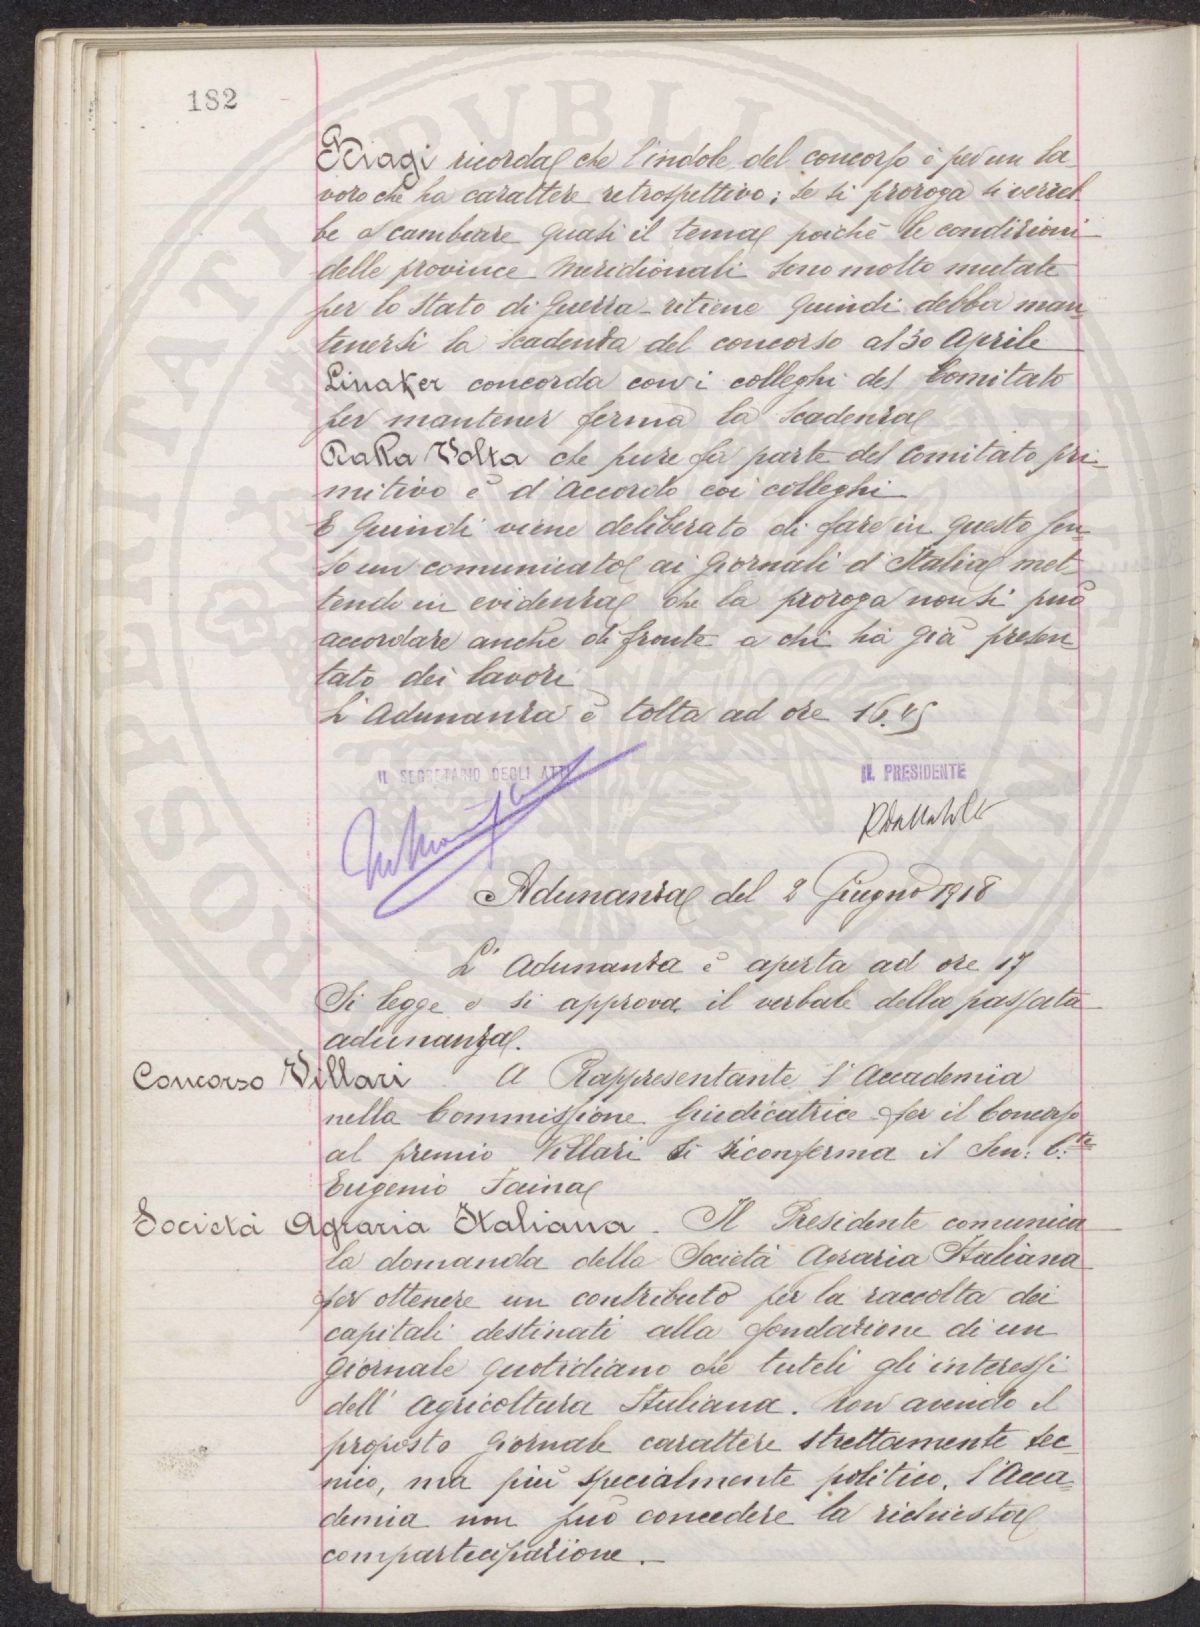 182
Biagi ricorda che l'indole del concorso è per un la
voro che ha carattere retrospettivo; se si proroga si verreb
be a cambiare quasi il tema poichè le condizioni
delle province meridionali sono molto mutate
per lo stato di guerra - ritiene quindi debba man
tenersi la scadenza del concorso al 30 Aprile
Linaker concorda con i colleghi del Comitato
per mantener ferma la scadenza
Dalla Volta che pure fa parte del Comitato pri
mitivo è d'accordo coi colleghi
E quindi viene deliberato di fare in questo sen
so un comunicato ai giornali d'Italia met
tendo in evidenza che la proroga non si può
accordare anche di fronte a chi ha già presen
tato dei lavori
L'Adunanza è tolta ad ore 16.45
IL SEGRETARIO DEGLI ATTI
IL PRESIDENTE
RDallaVolta
Adunanza del 2 Giugno 1918
L'Adunanza è aperta ad ore 17
Si legge e si approva il verbale della passata
adunanza.
Concorso Villari A Rappresentante l'Accademia
nella Commissione giudicatrice per il Concorso
al premio Villari si riconferma il Sen: C.te
Eugenio Faina
Società Agraria Italiana. Il Presidente comunica
la domanda della Società Agraria Italiana
per ottenere un contributo per la raccolta dei
capitali destinati alla fondazione di un
giornale quotidiano che tuteli gli interessi
dell'agricoltura Italiana. Non avendo il
proposto giornale carattere strettamente tec
nico, ma più specialmente politico, l'Acca
demia non può concedere la richiesta
compartecipazione.